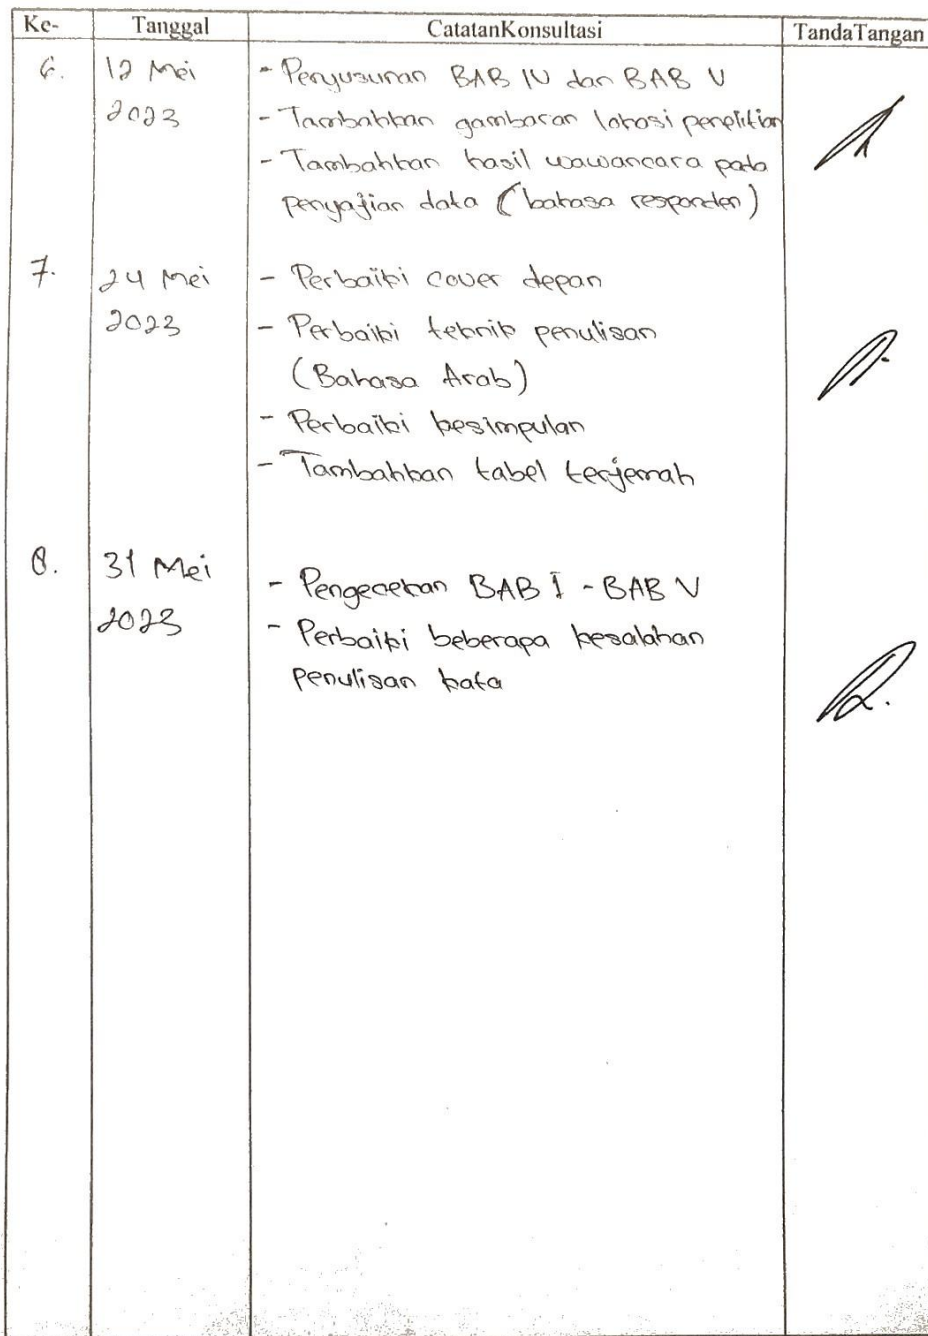 Ke- Tanggal CatatanKonsultasi TandaTangan
6. 12 Mei - Penyusunan BAB IV dan BAB V
2023 - Tambahkan gambaran lokasi penelitian
- Tambahkan hasil wawancara pada
penyajian data (bahasa responden)
7. 24 Mei - Perbaiki cover depan
2023 - Perbaiki teknik penulisan
(Bahasa Arab)
- Perbaiki kesimpulan
- Tambahkan tabel terjemah
8. 31 Mei - Pengecekan BAB I - BAB V
2023 - Perbaiki beberapa kesalahan
penulisan kata